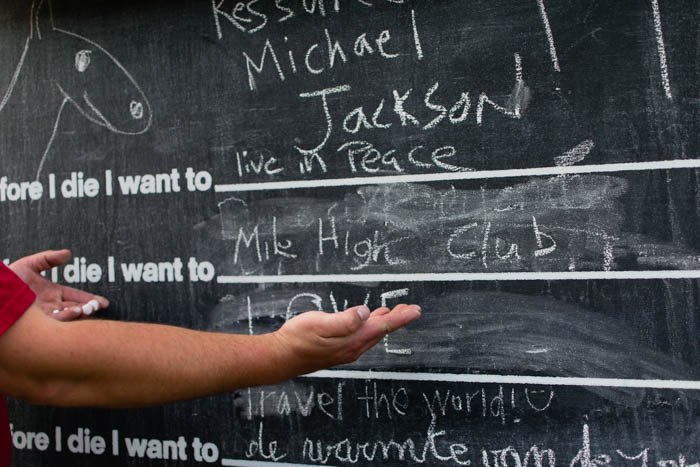 Michael
Jackson
fore I die I want to live in Peace
I die I want to Mile High Club
LOVE
travel the world!
ore I die I want to de warmte van de